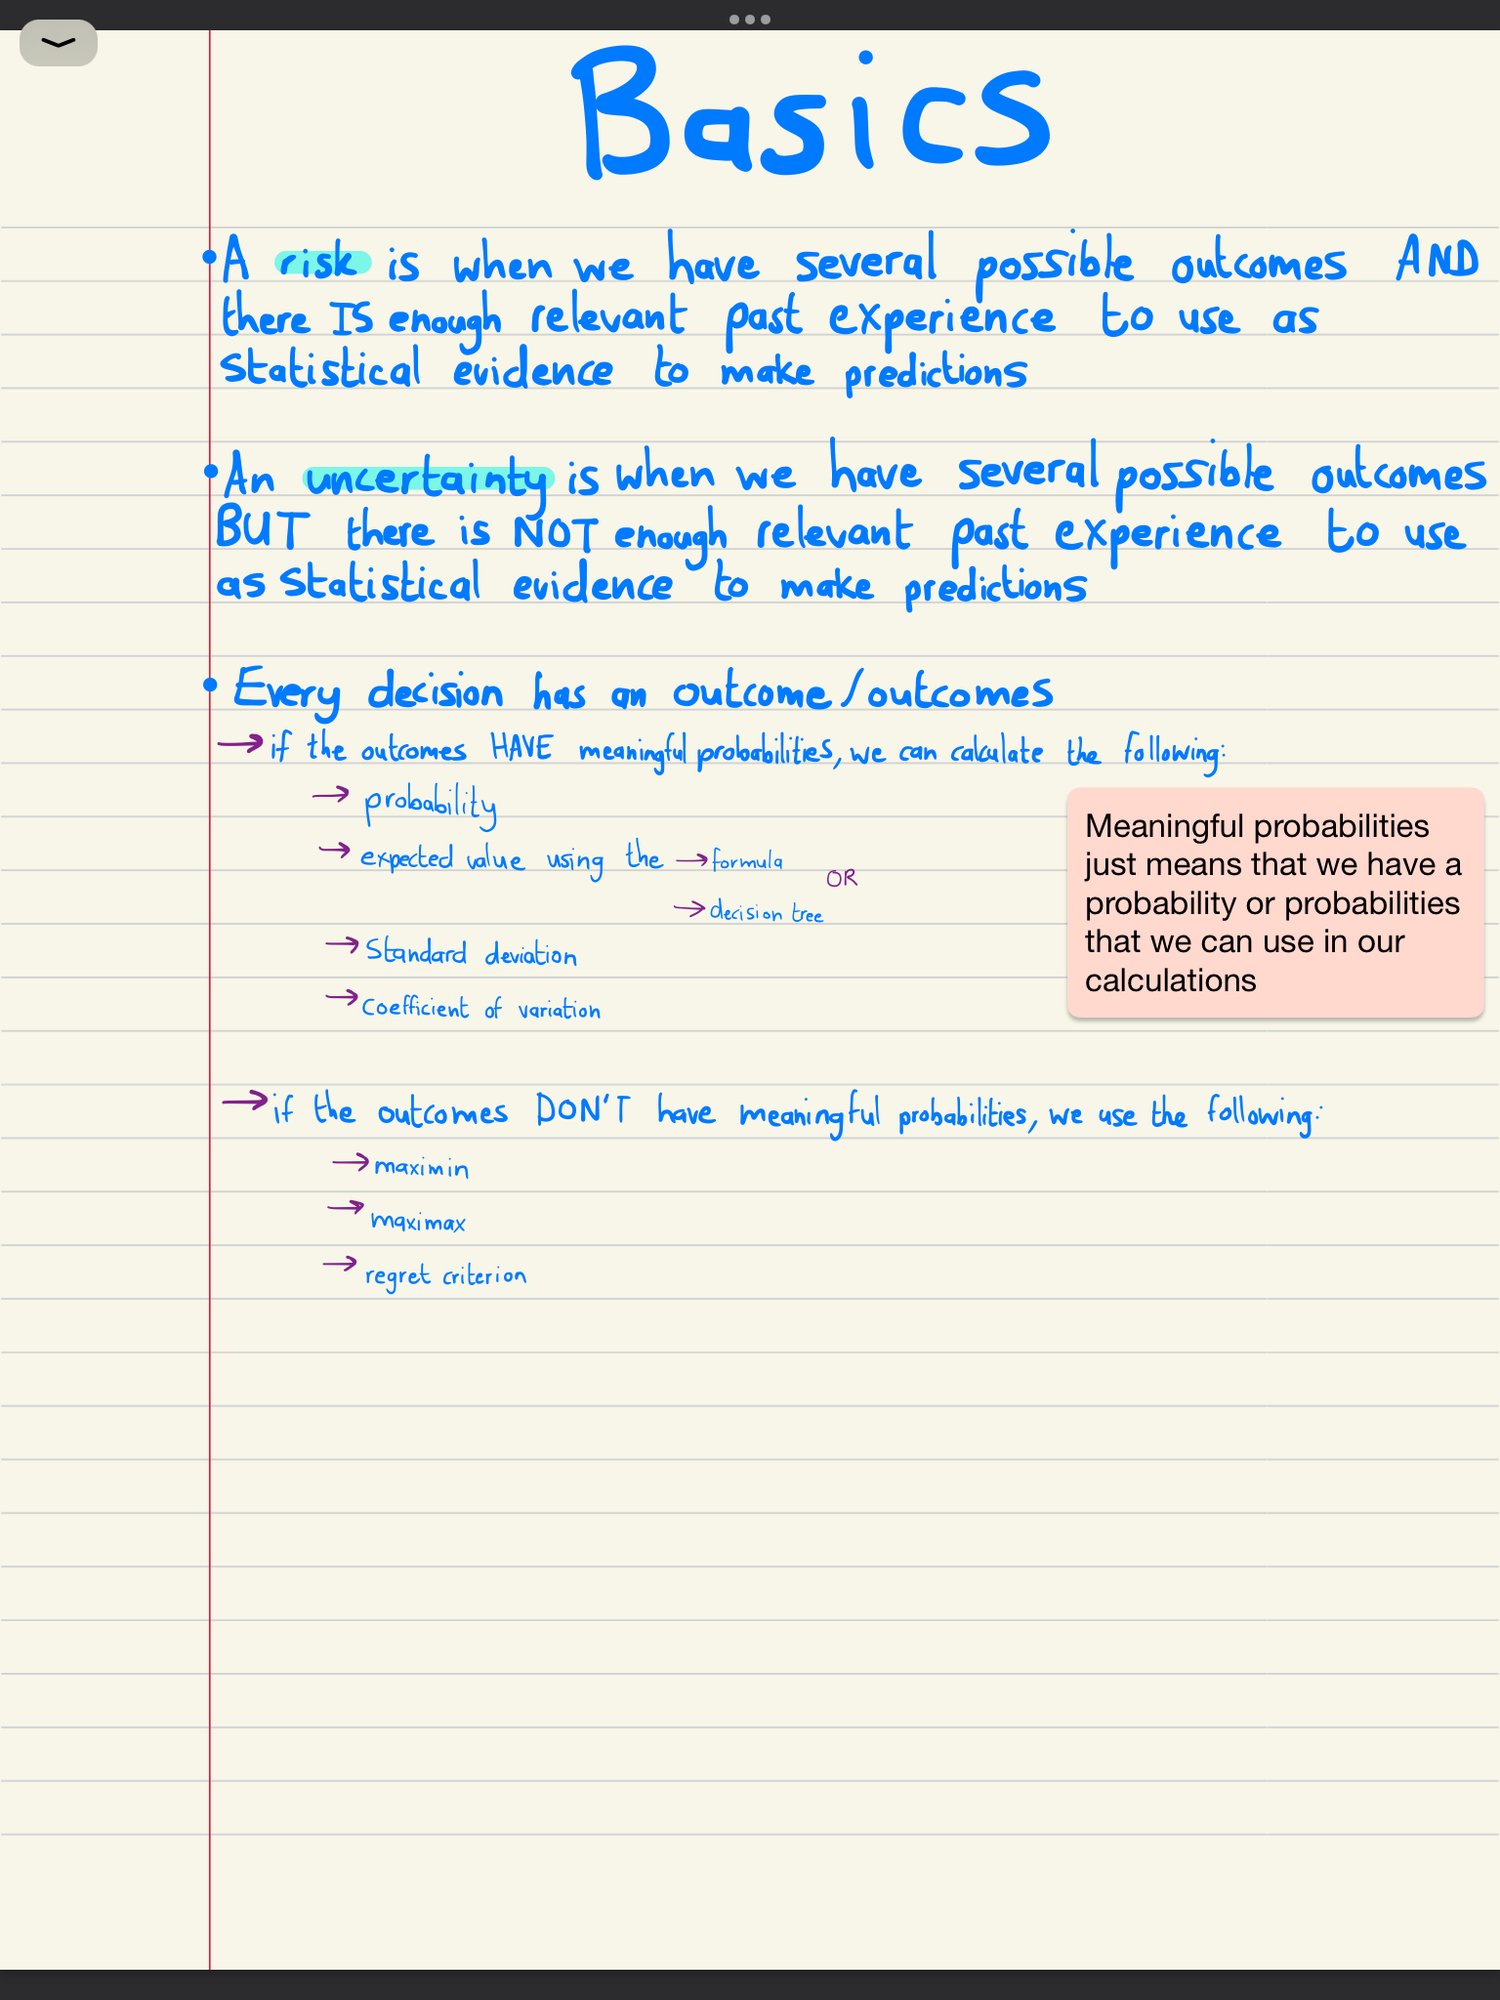 Basics
• A risk is when we have several possible outcomes AND
there IS enough relevant past experience to use as
Statistical evidence to make predictions
• An uncertainty is when we have several possible outcomes
BUT there is NOT enough relevant past experience to use
as Statistical evidence to make predictions
• Every decision has an outcome/outcomes
→ if the outcomes HAVE meaningful probabilities, we can calculate the following:
→ probability
→ expected value using the → formula
OR
→ decision tree
→ Standard deviation
→ Coefficient of variation
Meaningful probabilities
just means that we have a
probability or probabilities
that we can use in our
calculations
→ if the outcomes DON'T have meaningful probabilities, we use the following:
→ maximin
→ maximax
→ regret criterion